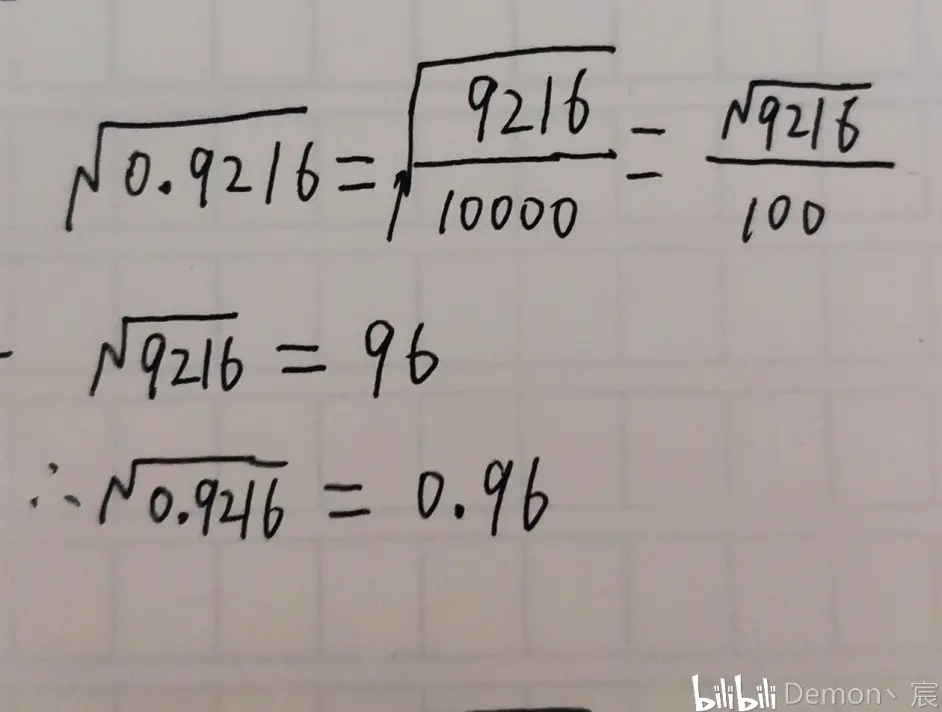 √0.9216 = √(9216/10000) = √9216/100
√9216 = 96
∴ √0.9216 = 0.96
bilibili Demon丶宸